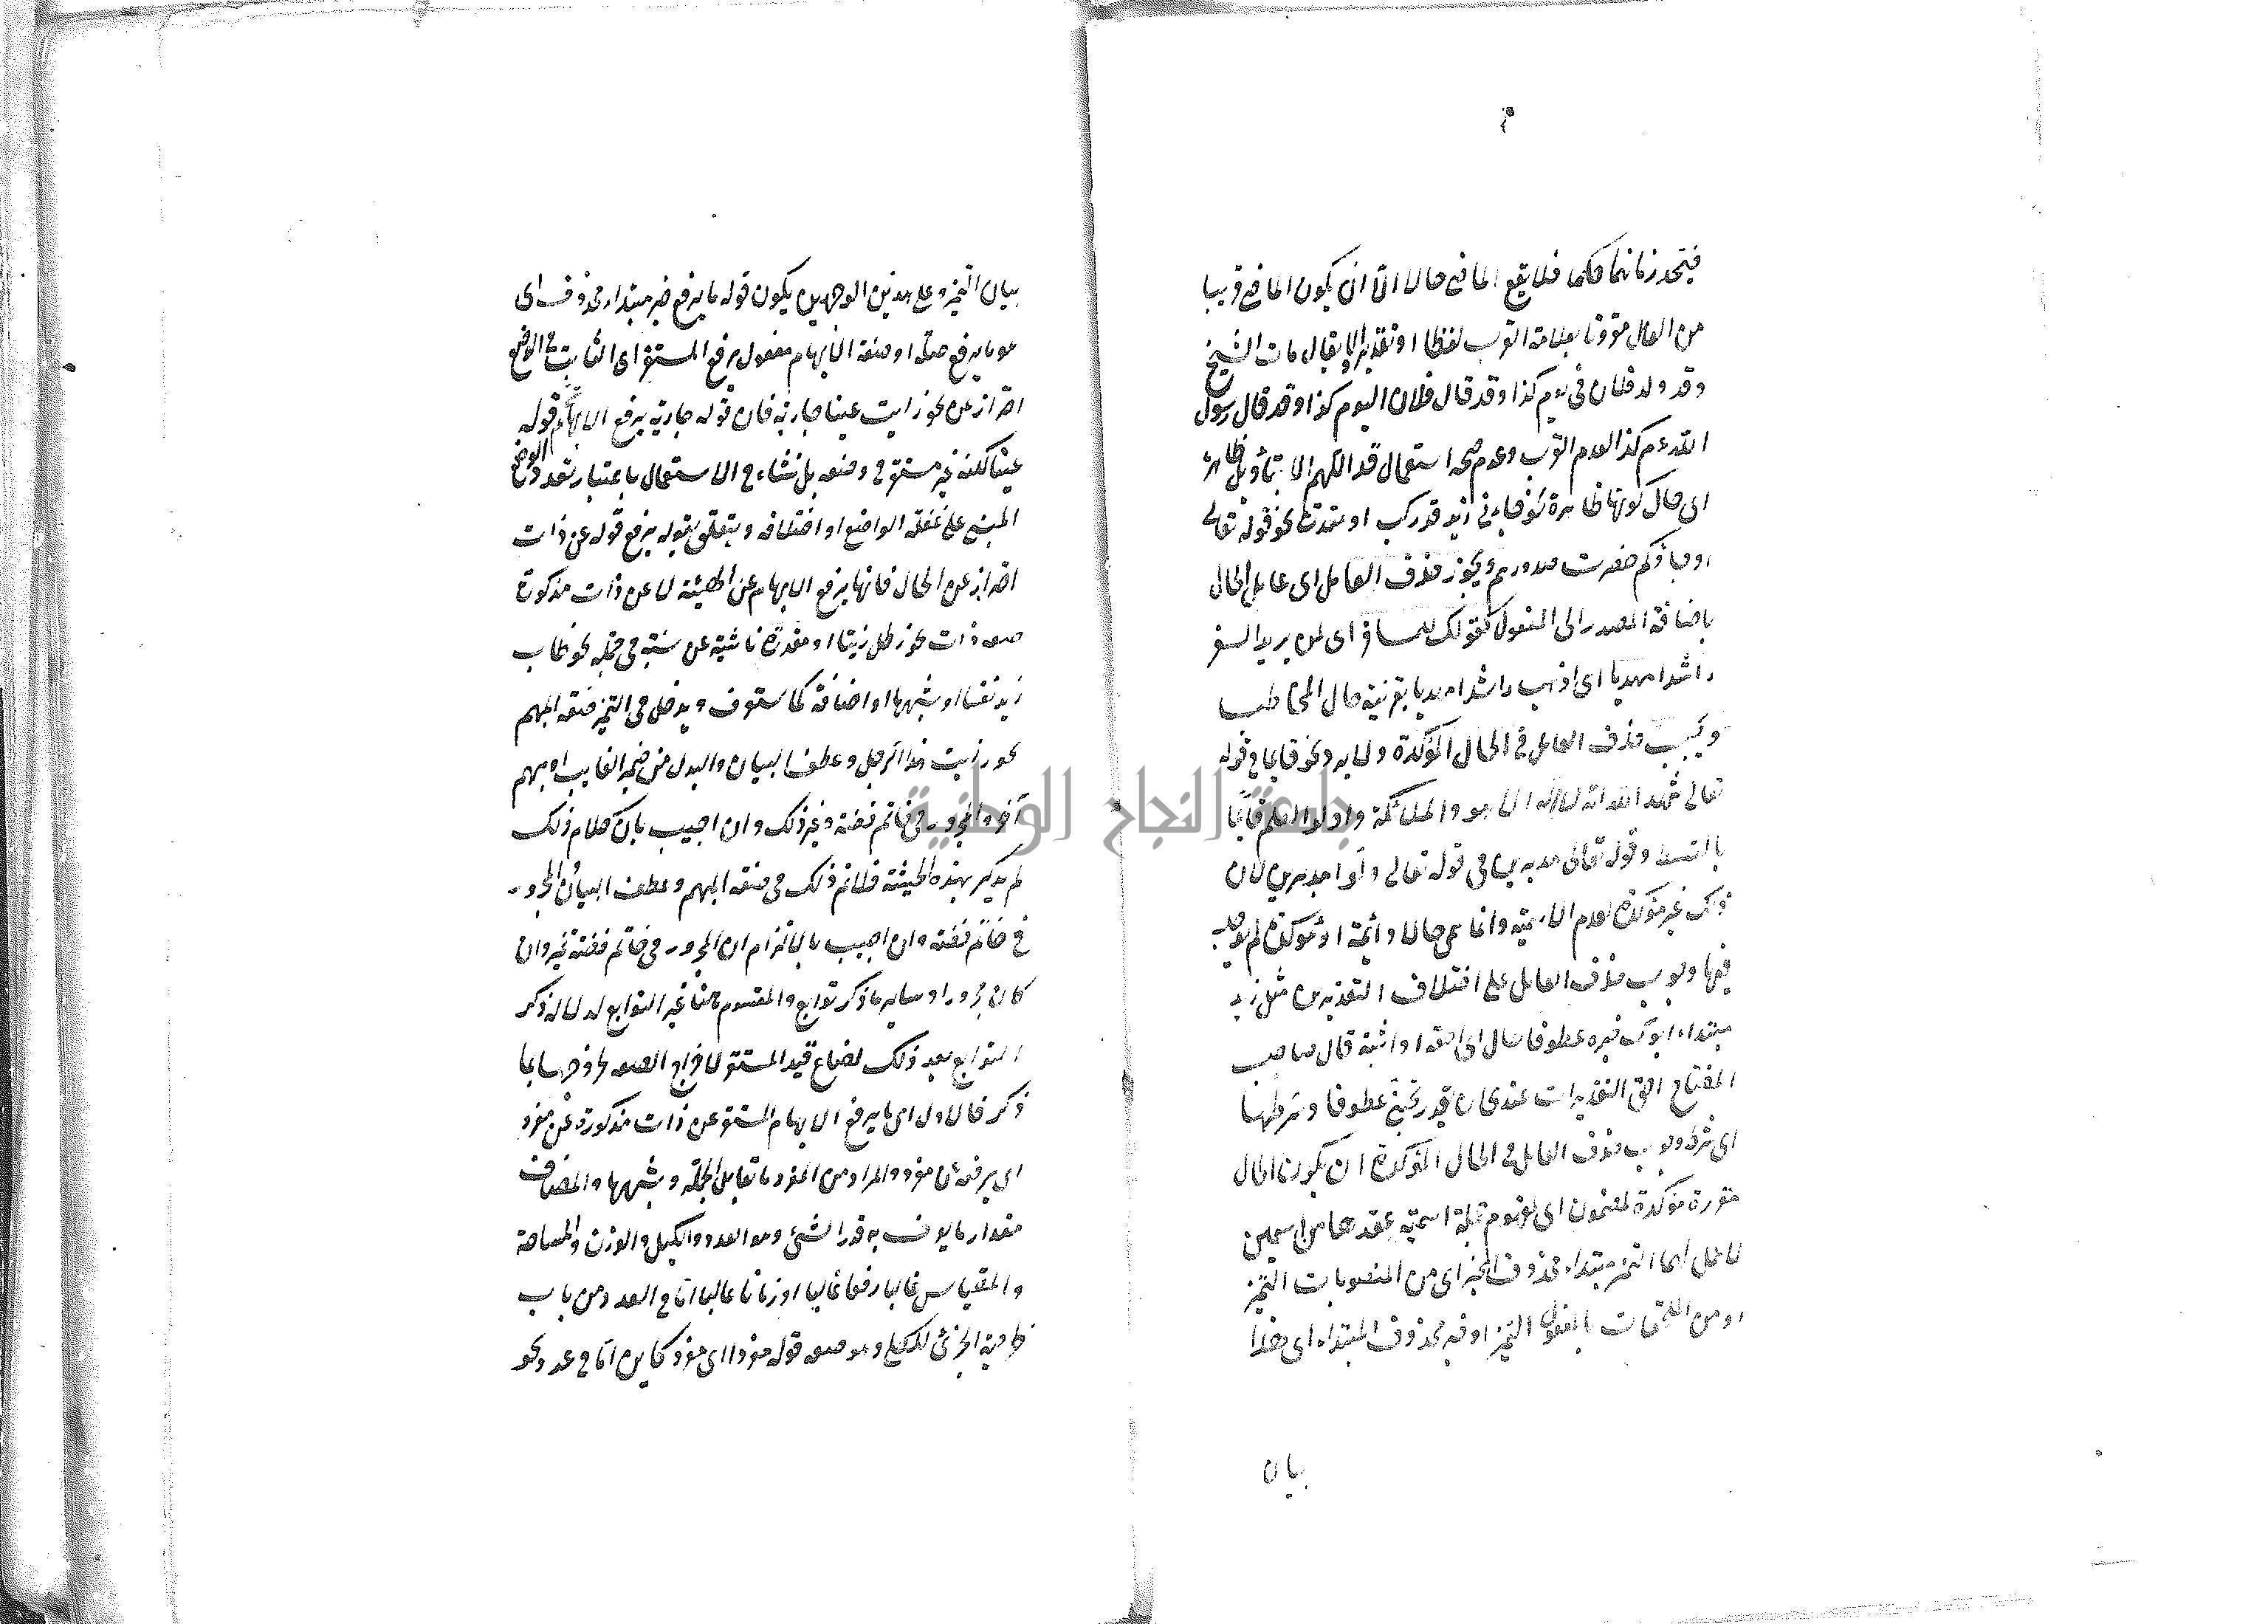 فيتحد زمانهما حكما فلا يقع الماضي حالا الا ان يكون الماضي قريبا
من الحال مقرونا بعلامة القرب لفظا او تقديرا لا يقال مات الشيخ
وقد ولد فلان في يوم كذا وقد قال فلان اليوم كذا وقد قال رسول
الله عم كذا لعدم القرب وعدم صحة استعمال قد اللهم الا بتأويل ظاهرة
اى حال كونها ظاهرة نحو جاءني زيد قد ركب او مقدرة نحو قوله تعالى
او جاؤكم حصرت صدورهم ويجوز حذف العامل اى عامل الحال
باضافة المصدر الى المفعول كقولك للمسافر اى لمن يريد السفر
راشدا مهديا اى اذهب راشدا مهديا بقرينة حال المخاطب
ويجب حذف العامل في الحال المؤكدة ولا يرد نحو قايما في قوله
تعالى شهد الله انه لا اله الا هو والملائكة واولوا العلم قائما
بالقسط وقوله تعالى مدبرين في قوله تعالى ولوا مدبرين لان
ذلك غير مؤكدة لعدم الاسمية وانما هي حالا دائمة او مؤكدة لم يوجد
فيها وجوب حذف العامل على اختلاف التقديرين مثل زيد
مبتداء ابوك خبره عطوفا حال اى احقه او اثبته قال صاحب
المفتاح احق التقديرات عندى ان يقدر يحنى عطوفا وشرطها
اى شرط وجوب حذف العامل في الحال المؤكدة ان يكون الحال
مقررة مؤكدة لمضمون اى لمفهوم جملة اسمية عقدها من اسمين
لا عمل لهما التميز مبتداء محذوف الخبر اى من المنصوبات التميز
او من الملحقات بالمفعول التميز او خبر محذوف المبتداء اى هذا
بيان
بيان التميز وعلى هذين الوجهين يكون قوله ما يرفع خبر مبتداء محذوف اى
هو ما يرفع صلة او صفة الابهام مفعول يرفع المستقر اى الثابت في الوضع
احتراز عن نحو رايت عينا جارية فان قوله جارية يرفع الابهام عن قوله
عينا لكنه غير مستقر في وضعه بل نشاء في الاستعمال باعتبار تعدد الوضع
المبنى على غفلة الواضع او اختلافه ويتعلق بقوله يرفع قوله عن ذات
احتراز عن الحال فانها يرفع الابهام عن الهيئة لا عن ذات مذكورة
صفة ذات نحو رطل زيتا او مقدرة ناشية عن نسبة في جملة نحو طاب
زيد نفسا او شبهها او اضافة كما ستعرف ويدخل في التميز صفة المبهم
نحو رايت هذا الرجل وعطف البيان والبدل من ضمير الغايب او مبهم
آخر والمجرور في خاتم فضة وغير ذلك وان اجيب بان كلا من ذلك
لم يذكر بهذه الحيثية فلا تم ذلك في صفة المبهم وعطف البيان والمجرور
في خاتم فضة وان اجيب بالالتزام ان المجرور في خاتم فضة تميز وان
كان مجرورا وساير ما ذكر توابع والمقسوم هنا غير التوابع لدلالة ذكر
التوابع بعد ذلك لضاع قيد المستقر لاخراج الصفة لخروجها بما
ذكر فالاول اى ما يرفع الابهام المستقر عن ذات مذكورة عن مفرد
اى يرفعه عن مفرد والمراد من المفرد ما تقابل الجملة وشبهها والمضاف
مقدار ما يعرف به قدر الشئ وهو العدد والكيل والوزن والمساحة
والمقياس غالبا رفعا غالبا او زمانا غالبا اما في العدد من باب
ظرفية الجزئى للكلى وهو صفة قوله مفردا اى مفرد كاين اما في عدد نحو
جامعة النجاح الوطنية